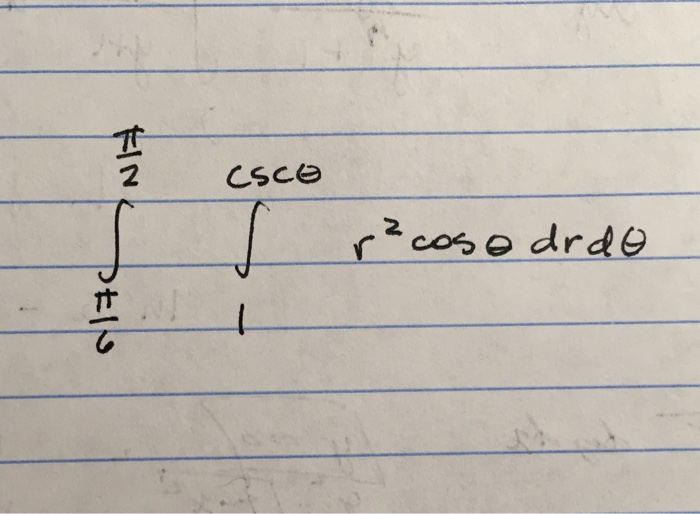 ∫_{π/6}^{π/2} ∫_{1}^{cscθ} r² cosθ dr dθ